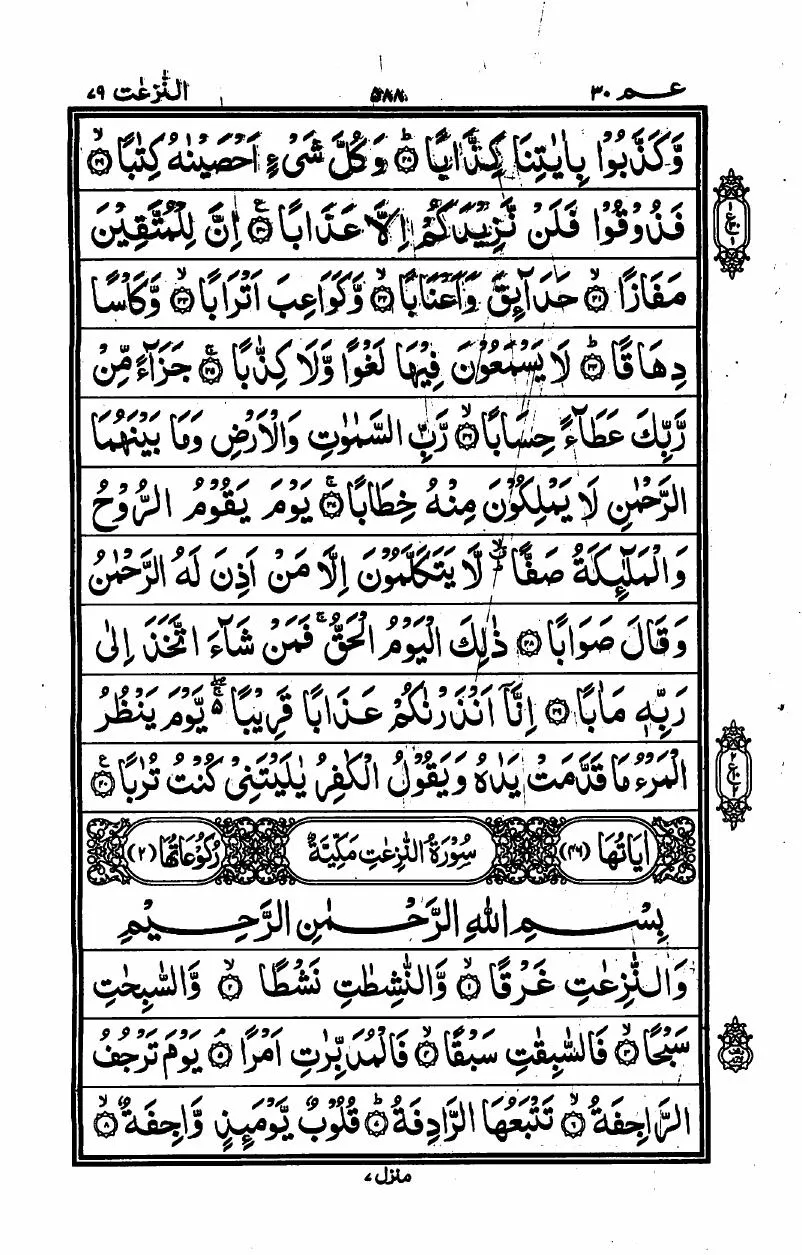 عم ٣٠
٥٨٨
النّٰزعٰت ٧٩
وَّكَذَّبُوْا بِاٰيٰتِنَا كِذَّابًا ۝٢٨ؕ وَكُلَّ شَيْءٍ اَحْصَيْنٰهُ كِتٰبًا ۝٢٩ۙ
فَذُوْقُوْا فَلَنْ نَّزِيْدَكُمْ اِلَّا عَذَابًا ۝٣٠ع اِنَّ لِلْمُتَّقِيْنَ
مَفَازًا ۝٣١ۙ حَدَآئِقَ وَاَعْنَابًا ۝٣٢ۙ وَّكَوَاعِبَ اَتْرَابًا ۝٣٣ۙ وَّكَاْسًا
دِهَاقًا ۝٣٤ؕ لَا يَسْمَعُوْنَ فِيْهَا لَغْوًا وَّلَا كِذّٰبًا ۝٣٥ۚ جَزَآءً مِّنْ
رَّبِّكَ عَطَآءً حِسَابًا ۝٣٦ۙ رَّبِّ السَّمٰوٰتِ وَالْاَرْضِ وَمَا بَيْنَهُمَا
الرَّحْمٰنِ لَا يَمْلِكُوْنَ مِنْهُ خِطَابًا ۝٣٧ۚ يَوْمَ يَقُوْمُ الرُّوْحُ
وَالْمَلٰٓئِكَةُ صَفًّا ۙ لَّا يَتَكَلَّمُوْنَ اِلَّا مَنْ اَذِنَ لَهُ الرَّحْمٰنُ
وَقَالَ صَوَابًا ۝٣٨ ذٰلِكَ الْيَوْمُ الْحَقُّ ۚ فَمَنْ شَآءَ اتَّخَذَ اِلٰى
رَبِّهٖ مَاٰبًا ۝٣٩ اِنَّآ اَنْذَرْنٰكُمْ عَذَابًا قَرِيْبًا ۖ۬ۚ يَّوْمَ يَنْظُرُ
الْمَرْءُ مَا قَدَّمَتْ يَدٰهُ وَيَقُوْلُ الْكٰفِرُ يٰلَيْتَنِيْ كُنْتُ تُرٰبًا ۝٤٠ع
اٰيَاتُهَا (٤٦) سُوْرَةُ النّٰزِعٰتِ مَكِّيَّةٌ رُكُوْعَاتُهَا (٢)
بِسْمِ اللّٰهِ الرَّحْمٰنِ الرَّحِيْمِ
وَالنّٰزِعٰتِ غَرْقًا ۝١ۙ وَّالنّٰشِطٰتِ نَشْطًا ۝٢ۙ وَّالسّٰبِحٰتِ
سَبْحًا ۝٣ۙ فَالسّٰبِقٰتِ سَبْقًا ۝٤ۙ فَالْمُدَبِّرٰتِ اَمْرًا ۝٥ۘ يَوْمَ تَرْجُفُ
الرَّاجِفَةُ ۝٦ۙ تَتْبَعُهَا الرَّادِفَةُ ۝٧ؕ قُلُوْبٌ يَّوْمَئِذٍ وَّاجِفَةٌ ۝٨ۙ
منزل ٧